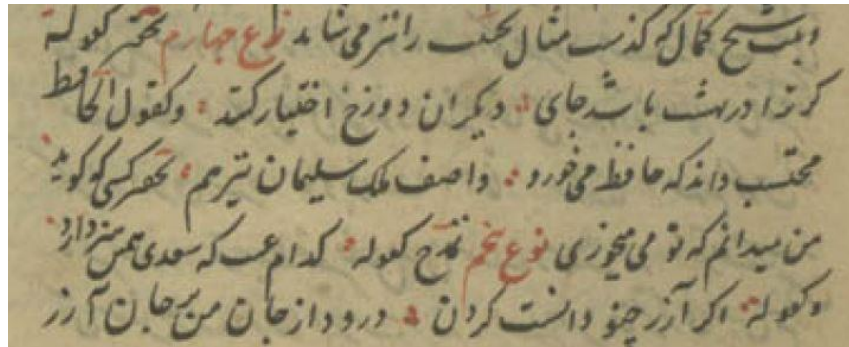 وبیت شیخ کمال که گذشت مثال تعجب را نیز می شاید نوع چهارم تحقیر کقوله
گر ترا در بهشت باشد جای دیگران دوزخ اختیار کنند وکقول الحافظ
محتسب داند که حافظ می خورد واصف ملک سلیمان نیز هم تحقیر کسی گوید
من میدانم که تو می میخوری نوع پنجم مدح کقوله کدام عیب که سعدی همین هنر دارد
وکقوله اگر آزر چنو دانست کردن درود از جان من بر جان آزر